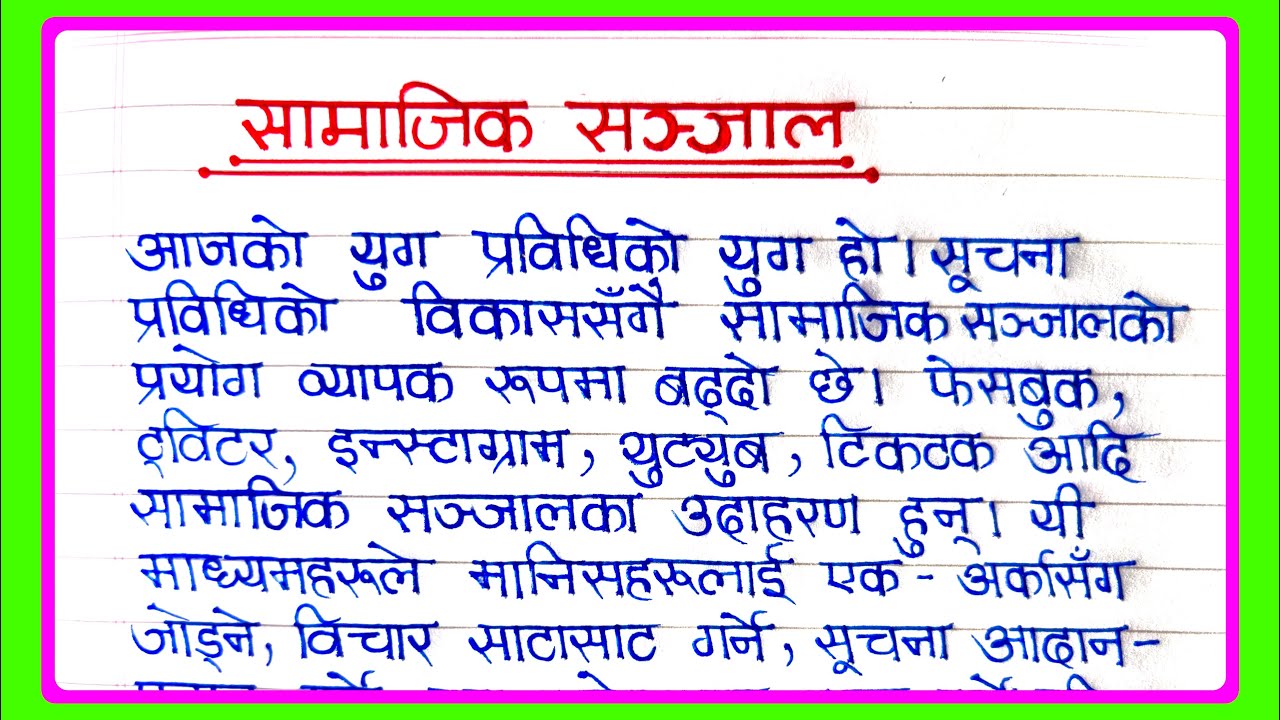 सामाजिक सञ्जाल
आजको युग प्रविधिको युग हो। सूचना
प्रविधिको विकाससँगै सामाजिक सञ्जालको
प्रयोग व्यापक रूपमा बढ्दो छे। फेसबुक,
ट्विटर, इन्स्टाग्राम, युट्युब, टिकटक आदि
सामाजिक सञ्जालका उदाहरण हुन्। यी
माध्यमहरूले मानिसहरूलाई एक - अर्कासँग
जोड्ने, विचार साटासाट गर्ने, सूचना आदान-